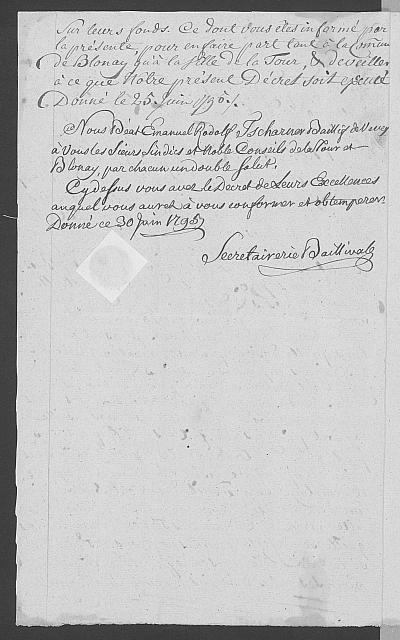 Sur leurs fonds. Ce dont vous êtes informé par
la présente, pour en faire part tant à la Comun
de Blonay qu'à la Ville de la Tour, & de veiller
à ce que Nôtre présent Décret soit exécuté
Donné le 25 Juin 1795.
Nous Beat Emanuel Rodolf Tscharner Baillif de Vevey
à Vous les Sieurs Sindics et Noble Conseils de la Tour et
Blonay, par chacun un double Salut.
Cydessus vous avez le Decret de Leurs Excellences
auquel vous aurez à vous conformer et obtemperer.
Donné ce 30 Juin 1795
Secretairerie Baillivale